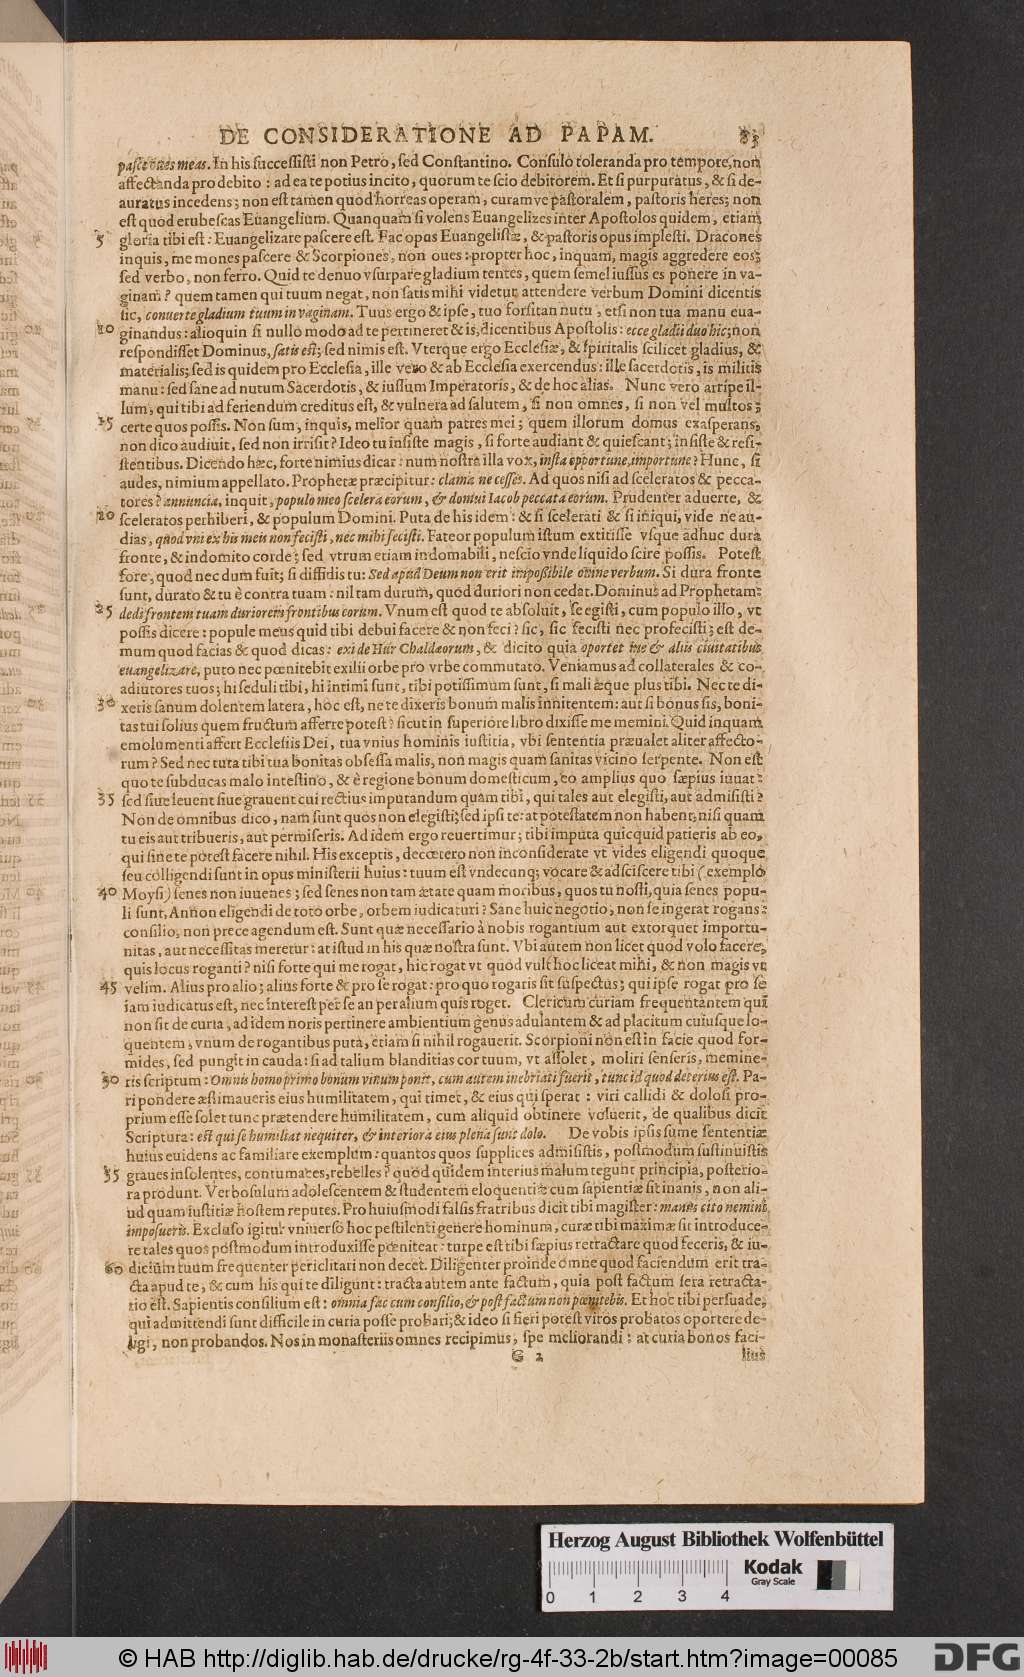 DE CONSIDERATIONE AD PAPAM. 83
pasce oues meas. In his successisti non Petro, sed Constantino. Consulo toleranda pro tempore, non
affectanda pro debito: ad ea te potius incito, quorum te scio debitorem. Et si purpuratus, & si de-
auratus incedens; non est tamen quod horreas operam, curamve pastoralem, pastoris heres; non
est quod erubescas Euangelium. Quanquam si volens Euangelizes inter Apostolos quidem, etiam
5 gloria tibi est: Euangelizare pascere est. Fac opus Euangelistæ, & pastoris opus implesti. Dracones
inquis, me mones pascere & Scorpiones, non oues: propter hoc, inquam, magis aggredere eos;
sed verbo, non ferro. Quid te denuo vsurpare gladium tentes, quem semel iussus es ponere in va-
ginam? quem tamen qui tuum negat, non satis mihi videtur attendere verbum Domini dicentis
sic, conuerte gladium tuum in vaginam. Tuus ergo & ipse, tuo forsitan nutu, etsi non tua manu eua-
10 ginandus: alioquin si nullo modo ad te pertineret & is, dicentibus Apostolis: ecce gladii duo hic; non
respondisset Dominus, satis est; sed nimis est. Vterque ergo Ecclesiæ, & spiritalis scilicet gladius, &
materialis; sed is quidem pro Ecclesia, ille vero & ab Ecclesia exercendus: ille sacerdotis, is militis
manu: sed sane ad nutum Sacerdotis, & iussum Imperatoris, & de hoc alias. Nunc vero arripe il-
lum, qui tibi ad feriendum creditus est, & vulnera ad salutem, si non omnes, si non vel multos;
15 certe quos possis. Non sum, inquis, melior quam patres mei; quem illorum domus exasperans,
non dico audiuit, sed non irrisit? Ideo tu insiste magis, si forte audiant & quiescant; insiste & resi-
stentibus. Dicendo hæc, forte nimius dicar: num nostra illa vox, insta opportune, importune? Hunc, si
audes, nimium appellato. Prophetæ præcipitur: clama ne cesses. Ad quos nisi ad sceleratos & pecca-
tores? annuncia, inquit, populo meo scelera eorum, & domui Iacob peccata eorum. Prudenter aduerte, &
20 sceleratos perhiberi, & populum Domini. Puta de his idem: & si scelerati & si iniqui, vide ne au-
dias, quod vni ex his meis non fecisti, nec mihi fecisti. Fateor populum istum extitisse vsque adhuc dura
fronte, & indomito corde; sed vtrum etiam indomabili, nescio vnde liquido scire possis. Potest
fore, quod nec dum fuit; si diffidis tu: Sed apud Deum non erit impoßibile omne verbum. Si dura fronte
sunt, durato & tu è contra tuam: nil tam durum, quod duriori non cedat. Dominus ad Prophetam:
25 dedi frontem tuam duriorem frontibus eorum. Vnum est quod te absoluit, se egisti, cum populo illo, vt
possis dicere: popule meus quid tibi debui facere & non feci? sic, sic fecisti nec profecisti; est de-
mum quod facias & quod dicas: exi de Hur Chaldæorum, & dicito quia oportet me & aliis ciuitatibus
euangelizare, puto nec pœnitebit exilii orbe pro vrbe commutato. Veniamus ad collaterales & co-
adiutores tuos; hi seduli tibi, hi intimi sunt, tibi potissimum sunt, si mali æque plus tibi. Nec te di-
30 xeris sanum dolentem latera, hoc est, ne te dixeris bonum malis innitentem: aut si bonus sis, boni-
tas tui solius quem fructum afferre potest? sicut in superiore libro dixisse me memini. Quid inquam
emolumenti affert Ecclesiis Dei, tua vnius hominis iustitia, vbi sententia præualet aliter affecto-
rum? Sed nec tuta tibi tua bonitas obsessa malis, non magis quam sanitas vicino serpente. Non est
quo te subducas malo intestino, & è regione bonum domesticum, eo amplius quo sæpius iuuat:
35 sed siue leuent siue grauent cui rectius imputandum quam tibi, qui tales aut elegisti, aut admisisti?
Non de omnibus dico, nam sunt quos non elegisti; sed ipsi te: at potestatem non habent, nisi quam
tu eis aut tribueris, aut permiseris. Ad idem ergo reuertimur; tibi imputa quicquid patieris ab eo,
qui sine te potest facere nihil. His exceptis, decœtero non inconsiderate vt vides eligendi quoque
seu colligendi sunt in opus ministerii huius: tuum est vndecunq; vocare & adsciscere tibi (exemplo
40 Moysi) senes non iuuenes; sed senes non tam ætate quam moribus, quos tu nosti, quia senes popu-
li sunt, An non eligendi de toto orbe, orbem iudicaturi? Sane huic negotio, non se ingerat rogans:
consilio, non prece agendum est. Sunt quæ necessario à nobis rogantium aut extorquet importu-
nitas, aut necessitas meretur: at istud in his quæ nostra sunt. Vbi autem non licet quod volo facere,
quis locus roganti? nisi forte qui me rogat, hic rogat vt quod vult hoc liceat mihi, & non magis vt
45 velim. Alius pro alio; alius forte & pro se rogat: pro quo rogaris sit suspectus; qui ipse rogat pro se
iam iudicatus est, nec interest per se an per alium quis roget. Clericum curiam frequentantem qui
non sit de curia, ad idem noris pertinere ambientium genus adulantem & ad placitum cuiusque lo-
quentem, vnum de rogantibus puta, etiam si nihil rogauerit. Scorpioni non est in facie quod for-
mides, sed pungit in cauda: si ad talium blanditias cor tuum, vt assolet, moliri senseris, memine-
50 ris scriptum: Omnis homo primo bonum vinum ponit, cum autem inebriati fuerit, tunc id quod deterius est. Pa-
ri pondere æstimaueris eius humilitatem, qui timet, & eius qui sperat: viri callidi & dolosi pro-
prium esse solet tunc prætendere humilitatem, cum aliquid obtinere voluerit, de qualibus dicit
Scriptura: est qui se humiliat nequiter, & interiora eius plena sunt dolo. De vobis ipsis sume sententiæ
huius euidens ac familiare exemplum: quantos quos supplices admisistis, postmodum sustinuistis
55 graues insolentes, contumaces, rebelles? quod quidem interius malum tegunt principia, posterio-
ra produnt. Verbosulum adolescentem & studentem eloquentiæ cum sapientiæ sit inanis, non ali-
ud quam iustitiæ hostem reputes. Pro huiusmodi falsis fratribus dicit tibi magister: manus cito nemini
imposueris. Excluso igitur vniuerso hoc pestilenti genere hominum, curæ tibi maximæ sit introduce-
re tales quos postmodum introduxisse pœniteat: turpe est tibi sæpius retractare quod feceris, & iu-
60 dicium tuum frequenter periclitari non decet. Diligenter proinde omne quod faciendum erit tra-
cta apud te, & cum his qui te diligunt: tracta autem ante factum, quia post factum sera retracta-
tio est. Sapientis consilium est: omnia fac cum consilio, & post factum non pœnitebis. Et hoc tibi persuade,
qui admittendi sunt difficile in curia posse probari; & ideo si fieri potest viros probatos oportere de-
ligi, non probandos. Nos in monasteriis omnes recipimus, spe meliorandi: at curia bonos faci-
G 2 lius
Herzog August Bibliothek Wolfenbüttel
Kodak
Gray Scale
0 1 2 3 4
© HAB http://diglib.hab.de/drucke/rg-4f-33-2b/start.htm?image=00085
DFG